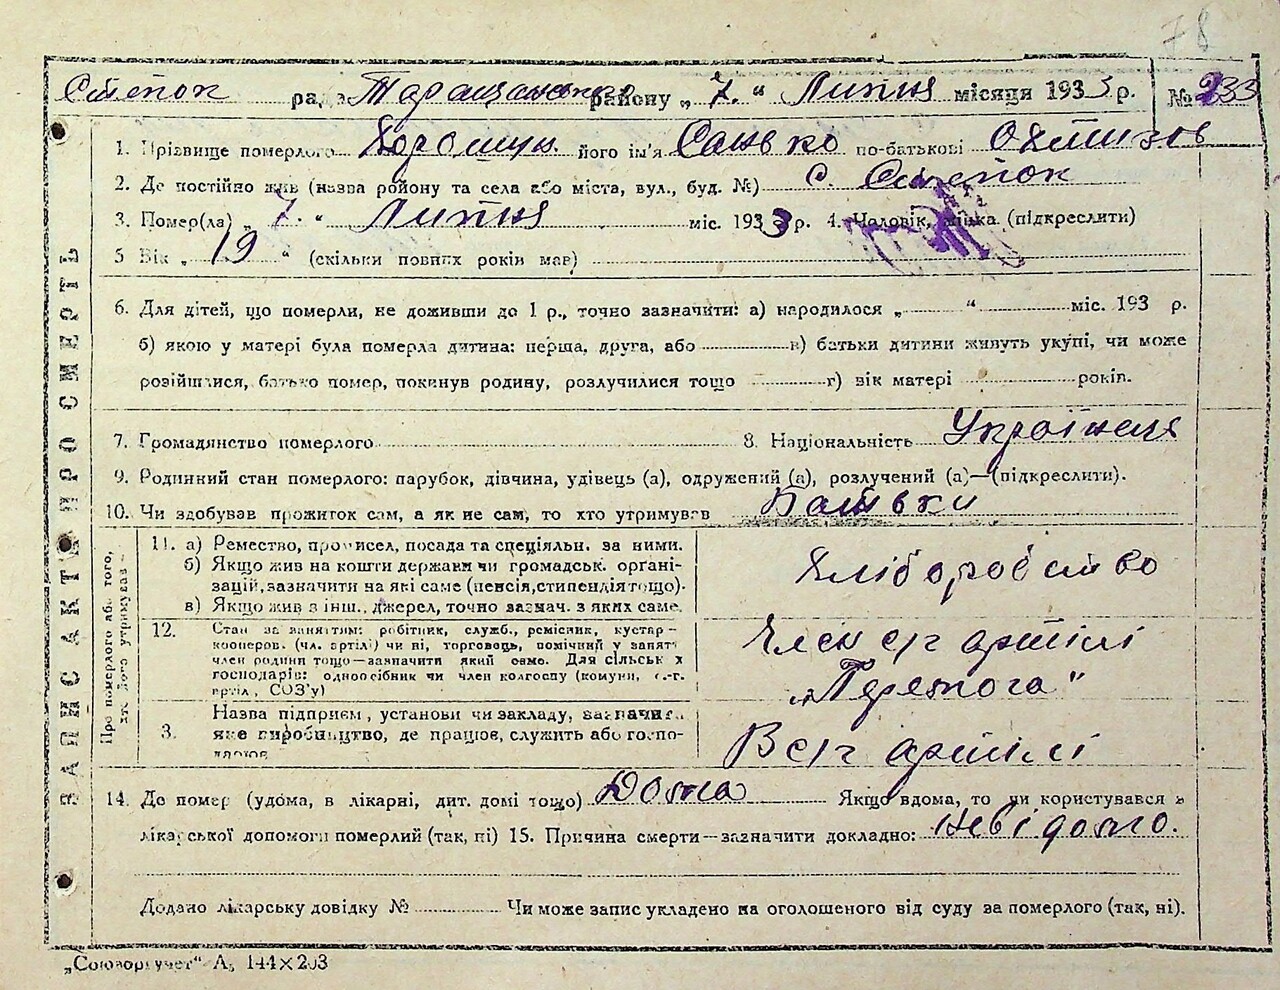 78
Степок рада Таращанського району „ 7. “ Липня місяця 1933 р. № 233
1. Прізвище померлого Хоромун. його ім'я Санько по-батькові
2. Де постійно жив (назва ройону та села або міста, вул., буд. №) с. Степок
3. Помер(ла) „ 7. “ Липня міс. 1933 р. 4. Чоловік, жінка (підкреслити)
5 Вік „ 19 “ (скільки повних років мав)
6. Для дітей, що померли, не доживши до 1 р., точно зазначити: а) народилося „ “ міс. 193 р.
б) якою у матері була померла дитина: перша, друга, або в) батьки дитини живуть укупі, чи може
розійшлися, батько помер, покинув родину, розлучилися тощо г) вік матері років.
7. Громадянство померлого 8. Національність Українець
9. Родинний стан померлого: парубок, дівчина, удівець (а), одружений (а), розлучений (а)—(підкреслити).
10. Чи здобував прожиток сам, а як не сам, то хто утримував Батьки
ЗАПИС АКТА ПРО СМЕРТЬ
Про померлого або того, хто його утримував
11. а) Ремество, промисел, посада та спеціяльн. за ними.
б) Якщо жив на кошти держави чи громадськ. органі-
зацій, зазначити на які саме (пенсія, стипендія тощо).
в) Якщо жив з інш., джерел, точно зазнач. з яких саме.
Хліборобство
12. Стан за заняттям: робітник, служб., ремісник, кустар-
кооперов. (чл. артілі) чи ні, торговець, помічний у занятті
член родини тощо—зазначити який само. Для сільськ х
господарів: одноосібник чи член колгоспу (комуни, с.-г.
артіл, СОЗ'у)
Член с/г артілі
„Перемога“
3. Назва підприєм, установи чи закладу, зазначити
яке виробництво, де працює, служить або госпо-
дарює
В с/г артілі
14. Де помер (удома, в лікарні, дит. домі тощо) Дома Якщо вдома, то чи користувався з
лікарської допомоги померлий (так, ні) 15. Причина смерти—зазначити докладно: невідомо.
Додано лікарську довідку № Чи може запис укладено на оголошеного від суду за померлого (так, ні).
„Союзоргучет“ А5 144×203